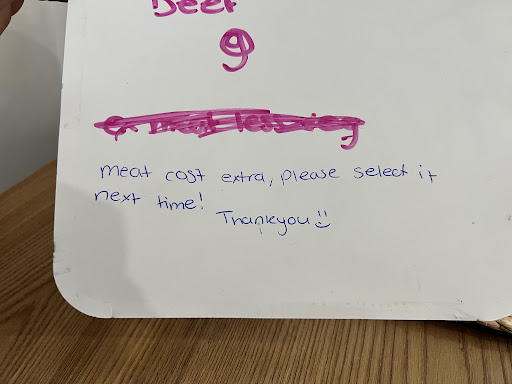 Beer
9
meat cost extra, please select it
next time!
Thankyou